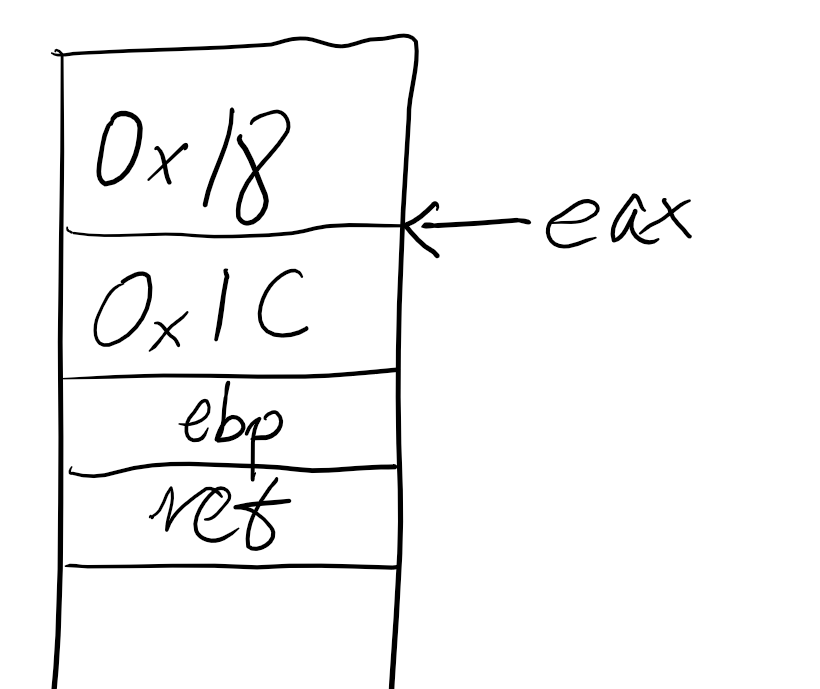 0x18
eax
0x1C
ebp
ret